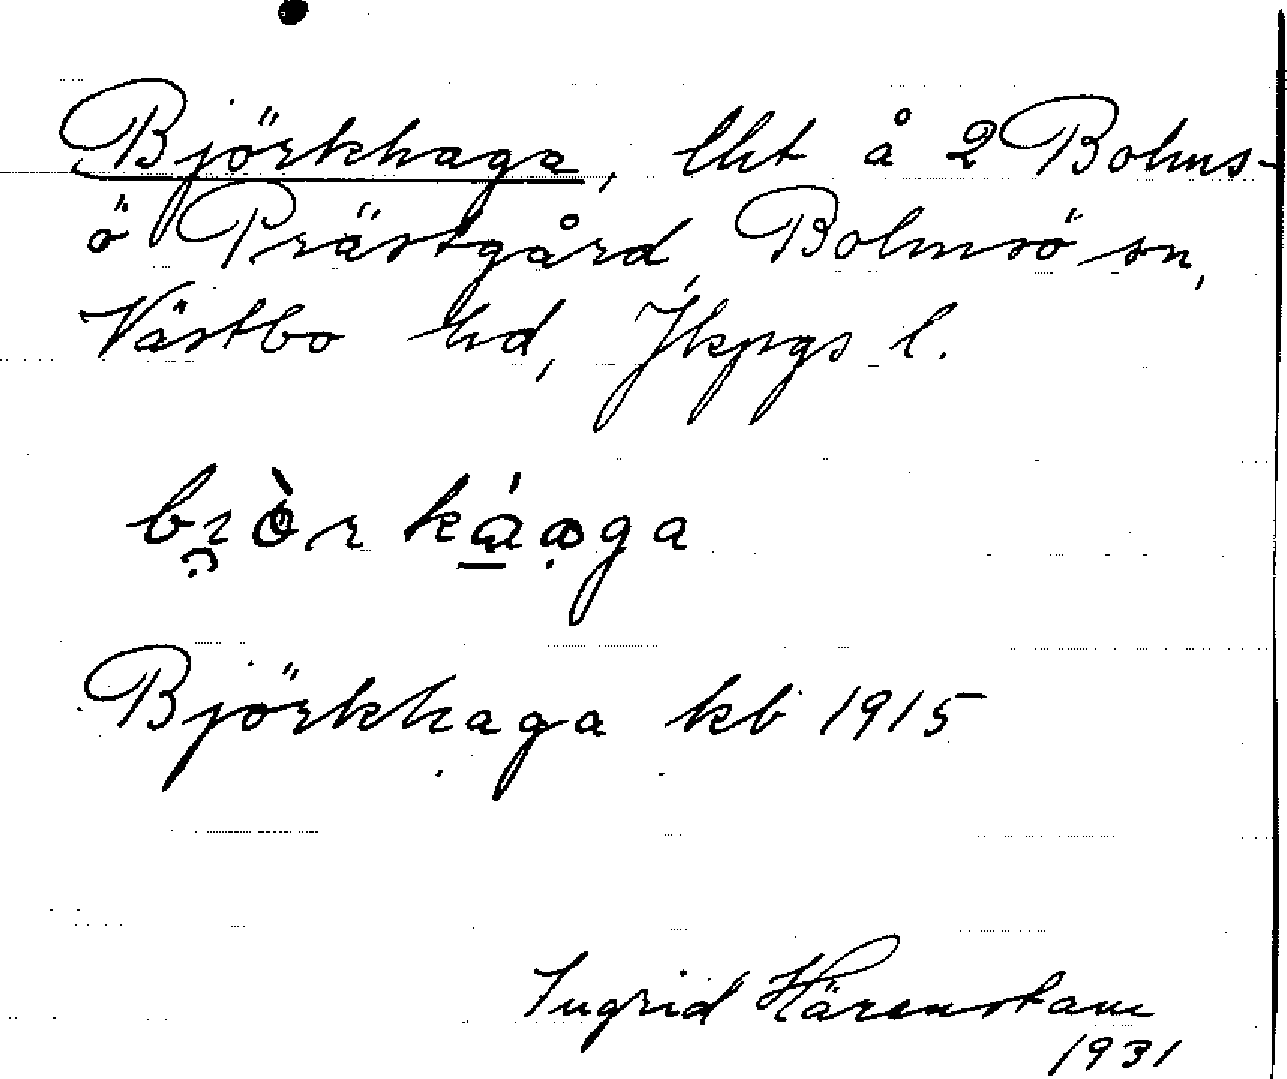 Björkhaga, lht å 2 Bolms-
ö Prästgård, Bolmsö sn,
Västbo hd, Jkpgs l.
Björkhaga kb 1915
Ingrid Härenstam
1931